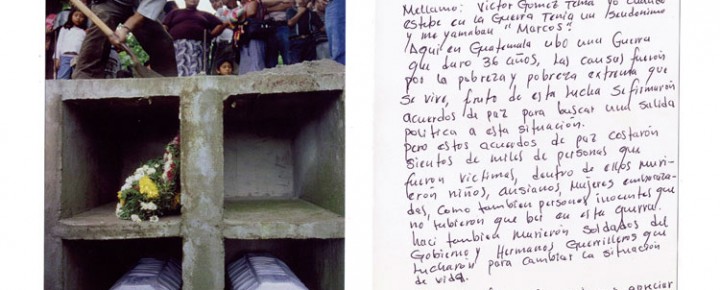 Mellamo: Victor Gomez Tema yo cuando
estube en la Guerra Tenia un seudonimo
y me yamaban "Marcos"
Aqui en Guatemala ubo una Guerra
que duro 36 años, Las causas fuerón
por la pobreza y pobreza extrema que
se vive, fruto de esta lucha se firmarón
acuerdos de paz para buscar una salida
política a esta situación.
pero estos acuerdos de paz costarón
sientos de miles de personas que
fueron victimas, dentro de ellos muri-
erón niños, ansianos, mujeres embaraza-
das, como tambien personas inocentes que
no tubieron que ber en esta Guerra.
haci tambien murierón soldados del
Gobierno y Hermanos Guerrilleros que
Lucharón para cambiar la situación
de vida.